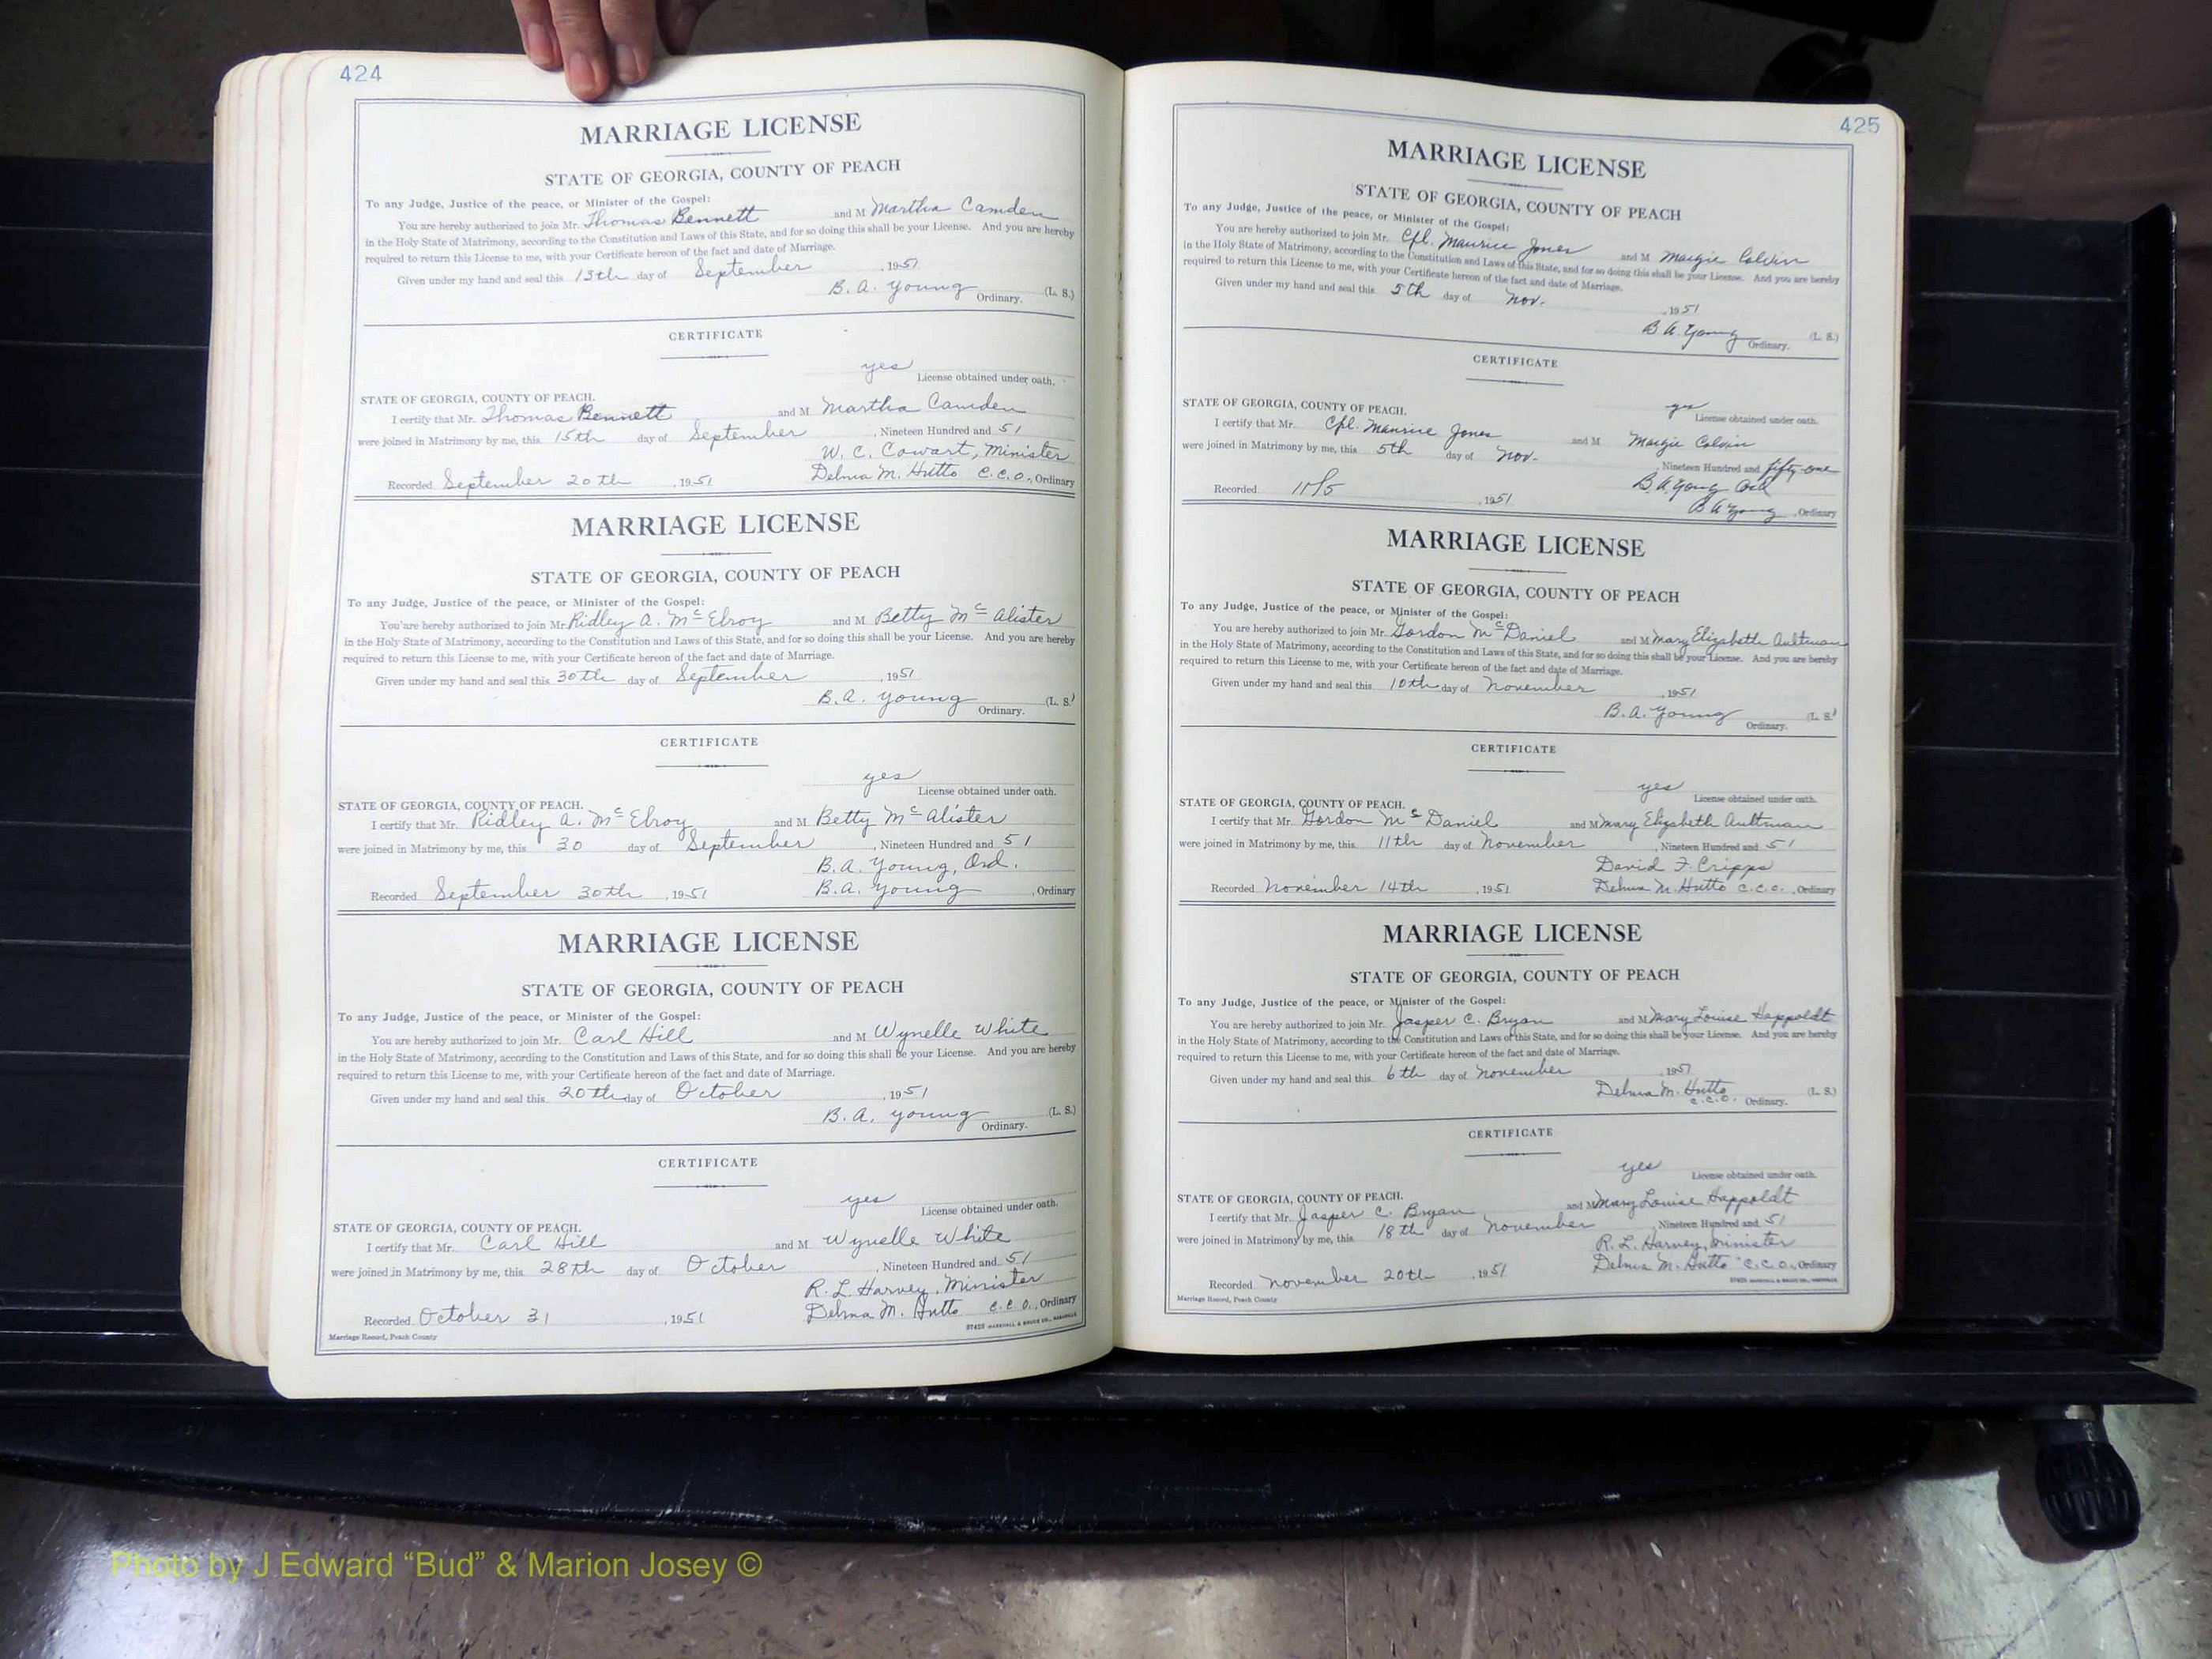 424
MARRIAGE LICENSE
STATE OF GEORGIA, COUNTY OF PEACH
To any Judge, Justice of the peace, or Minister of the Gospel:
You are hereby authorized to join Mr. Thomas Bennett and M Martha Camden
in the Holy State of Matrimony, according to the Constitution and Laws of this State, and for so doing this shall be your License. And you are hereby
required to return this License to me, with your Certificate hereon of the fact and date of Marriage.
Given under my hand and seal this 13th day of September , 1951
B. A. Young Ordinary. (L. S.)
CERTIFICATE
yes License obtained under oath.
STATE OF GEORGIA, COUNTY OF PEACH.
I certify that Mr. Thomas Bennett and M Martha Camden
were joined in Matrimony by me, this 15th day of September , Nineteen Hundred and 51
W. C. Cowart, Minister
Recorded September 20th , 1951 Delma M. Hutto C.C.O., Ordinary
MARRIAGE LICENSE
STATE OF GEORGIA, COUNTY OF PEACH
To any Judge, Justice of the peace, or Minister of the Gospel:
You are hereby authorized to join Mr. Ridley A. McElroy and M Betty McAlister
in the Holy State of Matrimony, according to the Constitution and Laws of this State, and for so doing this shall be your License. And you are hereby
required to return this License to me, with your Certificate hereon of the fact and date of Marriage.
Given under my hand and seal this 30th day of September , 1951
B. A. Young Ordinary. (L. S.)
CERTIFICATE
yes License obtained under oath.
STATE OF GEORGIA, COUNTY OF PEACH.
I certify that Mr. Ridley A. McElroy and M Betty McAlister
were joined in Matrimony by me, this 30 day of September , Nineteen Hundred and 51
B. A. Young, Ord.
Recorded September 30th , 1951 B. A. Young , Ordinary
MARRIAGE LICENSE
STATE OF GEORGIA, COUNTY OF PEACH
To any Judge, Justice of the peace, or Minister of the Gospel:
You are hereby authorized to join Mr. Carl Hill and M Wynelle White
in the Holy State of Matrimony, according to the Constitution and Laws of this State, and for so doing this shall be your License. And you are hereby
required to return this License to me, with your Certificate hereon of the fact and date of Marriage.
Given under my hand and seal this 20th day of October , 1951
B. A. Young Ordinary. (L. S.)
CERTIFICATE
yes License obtained under oath.
STATE OF GEORGIA, COUNTY OF PEACH.
I certify that Mr. Carl Hill and M Wynelle White
were joined in Matrimony by me, this 28th day of October , Nineteen Hundred and 51
R. L. Harvey, Minister
Recorded October 31 , 1951 Delma M. Hutto C.C.O., Ordinary
Marriage Record, Peach County MARSHALL & BRUCE CO., NASHVILLE
425
MARRIAGE LICENSE
STATE OF GEORGIA, COUNTY OF PEACH
To any Judge, Justice of the peace, or Minister of the Gospel:
You are hereby authorized to join Mr. Cpl. Maurice Jones and M Margie Colvin
in the Holy State of Matrimony, according to the Constitution and Laws of this State, and for so doing this shall be your License. And you are hereby
required to return this License to me, with your Certificate hereon of the fact and date of Marriage.
Given under my hand and seal this 5th day of Nov. , 1951
B A Young Ordinary. (L. S.)
CERTIFICATE
yes License obtained under oath.
STATE OF GEORGIA, COUNTY OF PEACH.
I certify that Mr. Cpl. Maurice Jones and M Margie Colvin
were joined in Matrimony by me, this 5th day of Nov. , Nineteen Hundred and fifty-one
B. A. Young Ord
Recorded 11/5 , 1951 B A Young , Ordinary
MARRIAGE LICENSE
STATE OF GEORGIA, COUNTY OF PEACH
To any Judge, Justice of the peace, or Minister of the Gospel:
You are hereby authorized to join Mr. Gordon McDaniel and M Mary Elizabeth Aultman
in the Holy State of Matrimony, according to the Constitution and Laws of this State, and for so doing this shall be your License. And you are hereby
required to return this License to me, with your Certificate hereon of the fact and date of Marriage.
Given under my hand and seal this 10th day of November , 1951
B. A. Young Ordinary. (L. S.)
CERTIFICATE
yes License obtained under oath.
STATE OF GEORGIA, COUNTY OF PEACH.
I certify that Mr. Gordon McDaniel and M Mary Elizabeth Aultman
were joined in Matrimony by me, this 11th day of November , Nineteen Hundred and 51
David F. Cripps
Recorded November 14th , 1951 Delma M. Hutto C.C.O. , Ordinary
MARRIAGE LICENSE
STATE OF GEORGIA, COUNTY OF PEACH
To any Judge, Justice of the peace, or Minister of the Gospel:
You are hereby authorized to join Mr. Jasper C. Bryan and M Mary Louise Happoldt
in the Holy State of Matrimony, according to the Constitution and Laws of this State, and for so doing this shall be your License. And you are hereby
required to return this License to me, with your Certificate hereon of the fact and date of Marriage.
Given under my hand and seal this 6th day of November , 1951
Delma M. Hutto C.C.O. Ordinary. (L. S.)
CERTIFICATE
yes License obtained under oath.
STATE OF GEORGIA, COUNTY OF PEACH.
I certify that Mr. Jasper C. Bryan and M Mary Louise Happoldt
were joined in Matrimony by me, this 18th day of November , Nineteen Hundred and 51
R. L. Harvey, Minister
Recorded November 20th , 1951 Delma M. Hutto C.C.O., Ordinary
Marriage Record, Peach County
Photo by J Edward "Bud" & Marion Josey ©